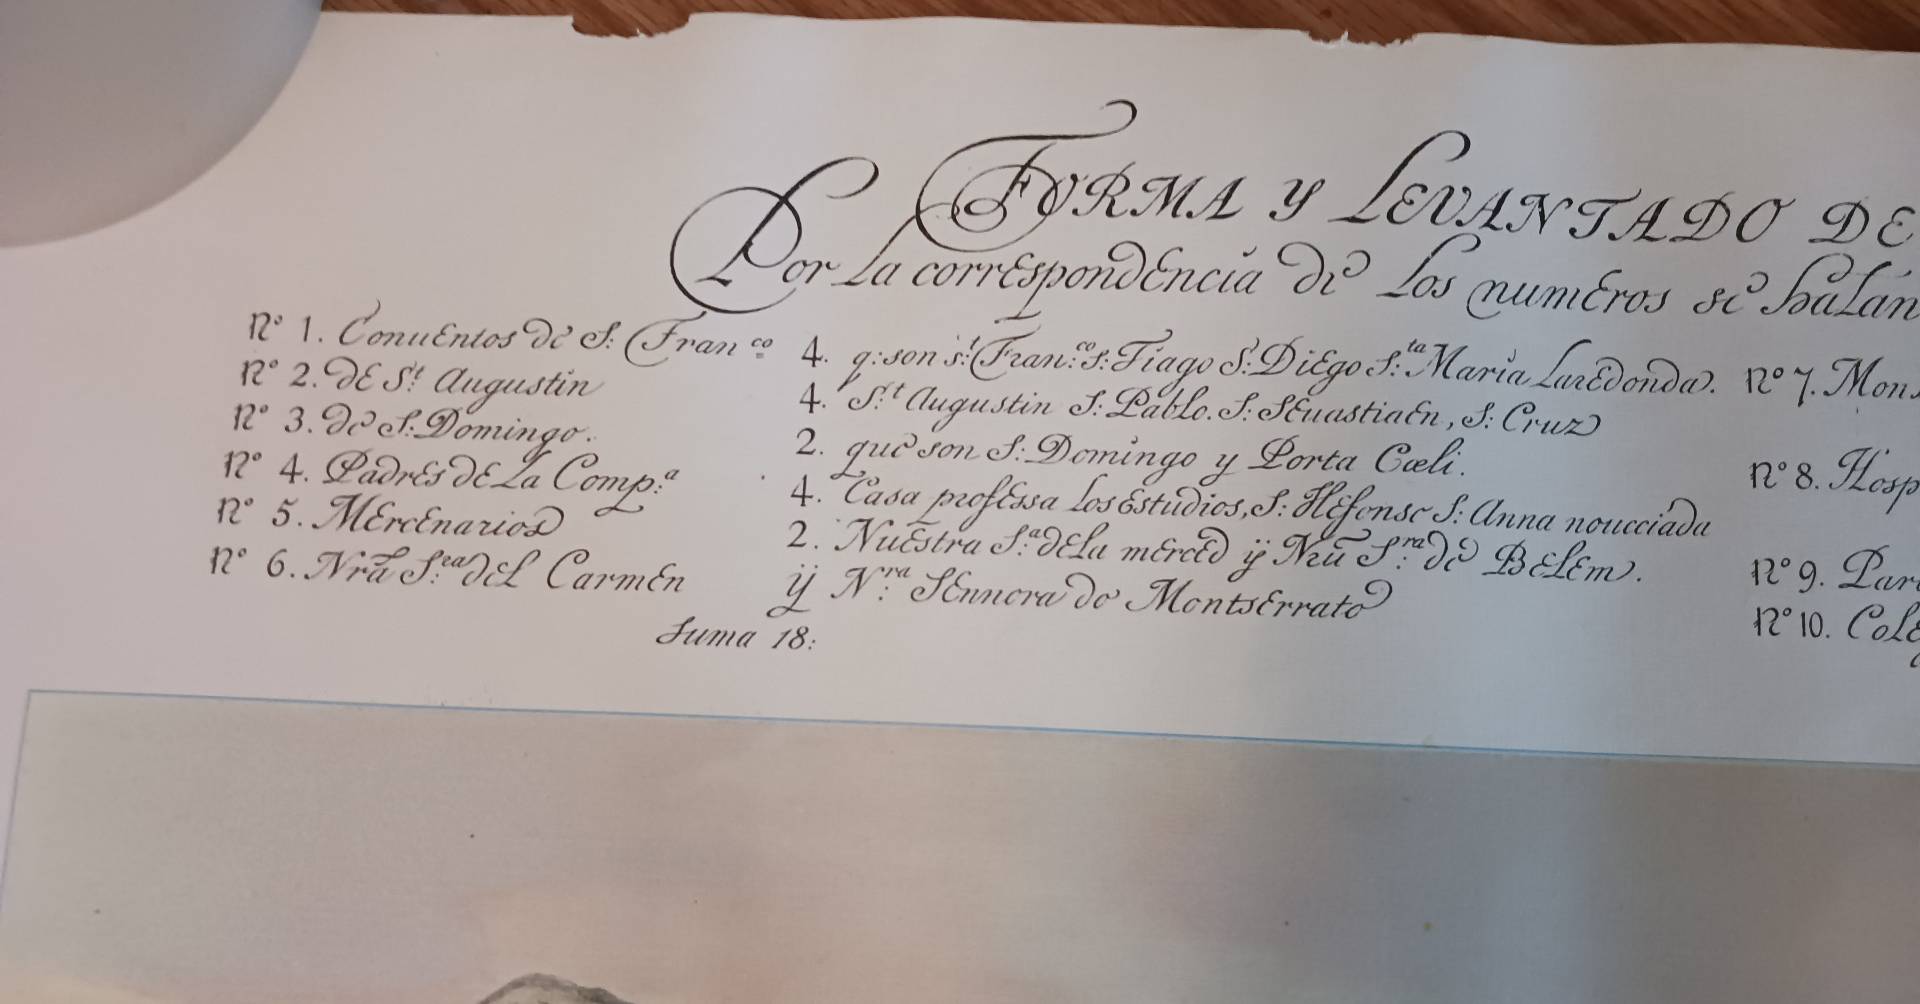 FORMA Y LEVANTADO DE
Por la correspondencia de los numeros se halan
Nº 1. Conuentos de S: Fran.co 4. q: son s:t Fran:co S: Tiago S: Diego S:ta Maria Laredonda.
Nº 2. de S:t Augustin 4. S:t Augustin S: Pablo. S: Seuastiaen, S: Cruz
Nº 3. de S: Domingo. 2. que son S: Domingo y Porta Cœli.
Nº 4. Padres de La Comp:a 4. Casa professa los estudios, S: Ilefonse S: Anna noucciada
Nº 5. Mercenarios 2. Nuestra S:a dela merced ÿ Nrã S:ra de Belem.
Nº 6. Nrã S:ra del Carmen ÿ N:ra Sennora de Montserrato
Suma 18:
Nº 7. Mons
Nº 8. Hosp
Nº 9. Par
Nº 10. Cole